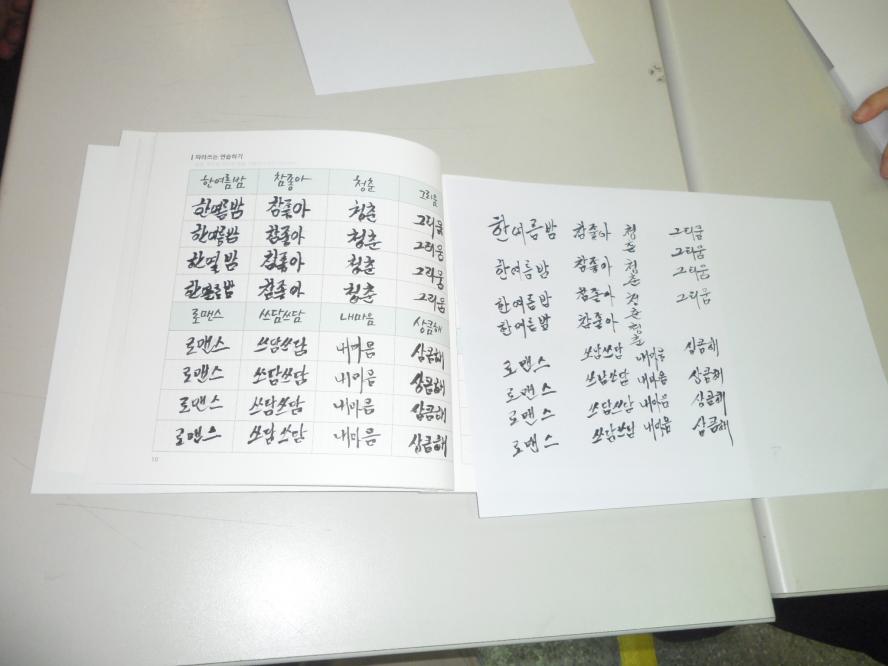 따라쓰는 연습하기
한여름밤 참좋아 청춘 그리움
한여름밤 참좋아 청춘 그리움
한여름밤 참좋아 청춘 그리움
한열밤 참좋아 청춘 그리움
한여름밤 참좋아 청춘 그리움
로맨스 쓰담쓰담 내마음 상큼해
로맨스 쓰담쓰담 내마음 상큼해
로맨스 쓰담쓰담 내마음 상큼해
로맨스 쓰담쓰담 내마음 상큼해
로맨스 쓰담쓰담 내마음 상큼해
10
한여름밤 참좋아 청춘 그리움
한여름밤 참좋아 청춘 그리움
한여름밤 참좋아 청춘 그리움
한여름밤 참좋아 청춘 그리움
로맨스 쓰담쓰담 내마음 상큼해
로맨스 쓰담쓰담 내마음 상큼해
로맨스 쓰담쓰담 내마음 상큼해
로맨스 쓰담쓰담 내마음 상큼해